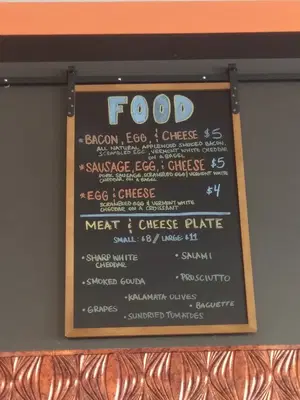 FOOD
*BACON, EGG, & CHEESE $5
ALL NATURAL APPLEWOOD SMOKED BACON,
SCRAMBLED EGG, VERMONT WHITE CHEDDAR
ON A BAGEL
*SAUSAGE, EGG, & CHEESE $5
PORK SAUSAGE, SCRAMBLED EGG, VERMONT WHITE
CHEDDAR, ON A BAGEL
*EGG & CHEESE $4
SCRAMBLED EGG & VERMONT WHITE
CHEDDAR ON A CROISSANT
MEAT & CHEESE PLATE
SMALL: $8 // LARGE: $11
• SHARP WHITE CHEDDAR
• SALAMI
• SMOKED GOUDA
• PROSCIUTTO
• KALAMATA OLIVES
• GRAPES
• BAGUETTE
• SUNDRIED TOMATOES